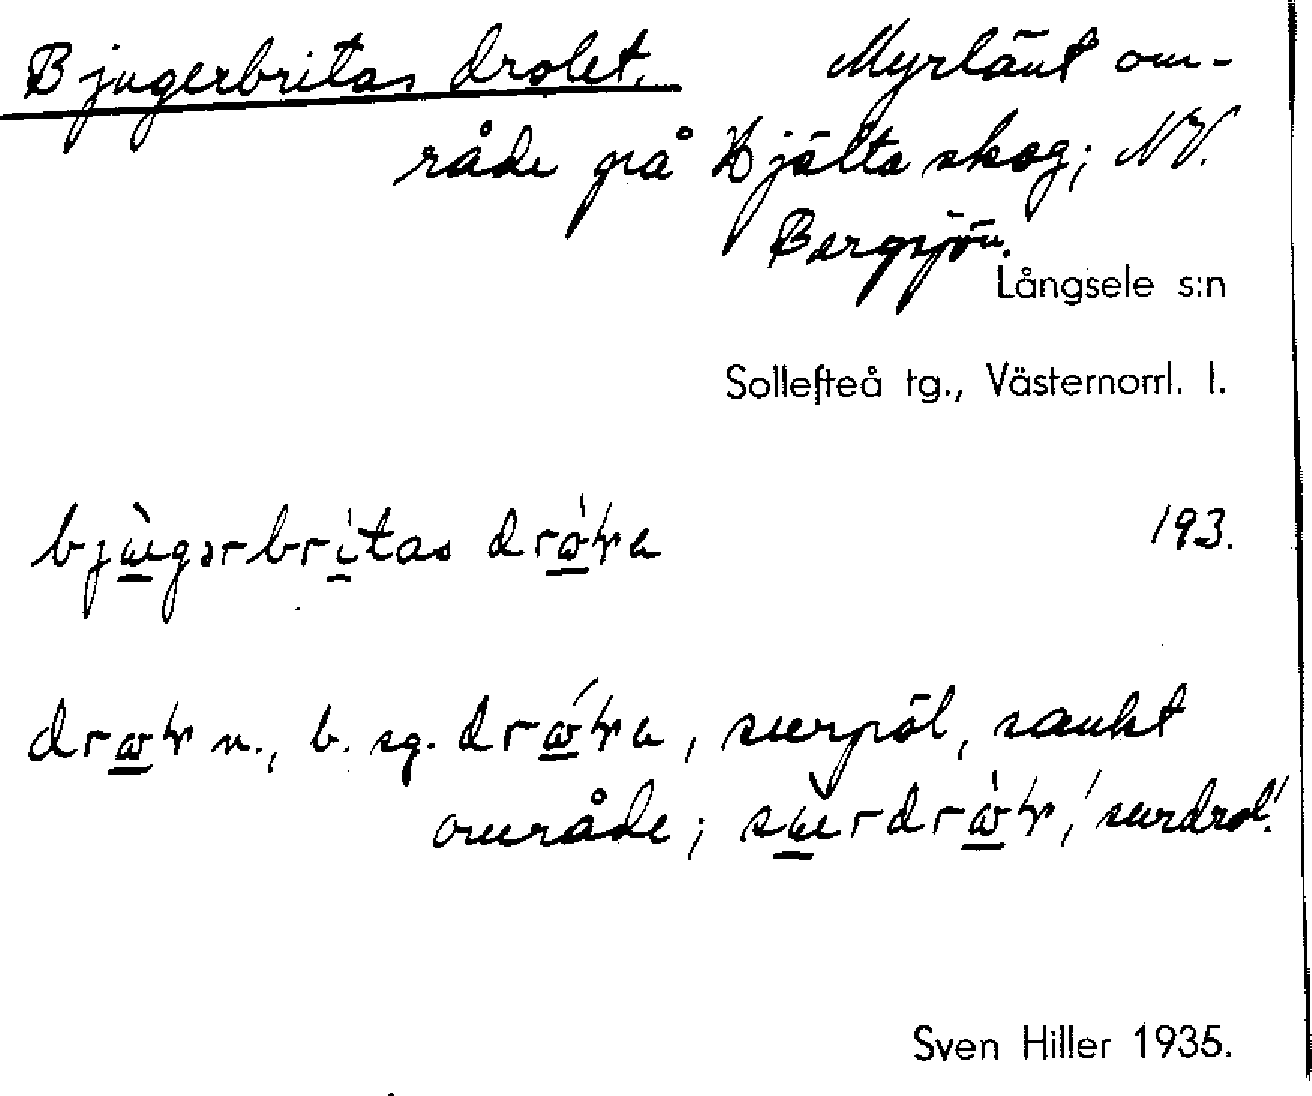 Bjugerbritas drolet. Myrlänt om-
råde på Hjälta skog; NV.
Bergsjön.
Långsele s:n
Sollefteå tg., Västernorrl. l.
bjùgərbrítas dról̥a 193.
drol̥ n., b. sg. dról̥a, surpöl, sankt
område; sùrdról̥, 'surdrol'.
Sven Hiller 1935.